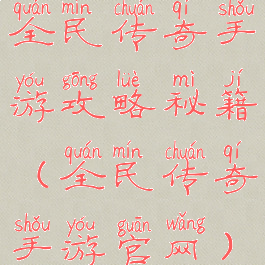 quán mín chuán qí shǒu
全民传奇手
yóu gōng lüè mì jí
游攻略秘籍
quán mín chuán qí
（全民传奇
shǒu yóu guān wǎng
手游官网）